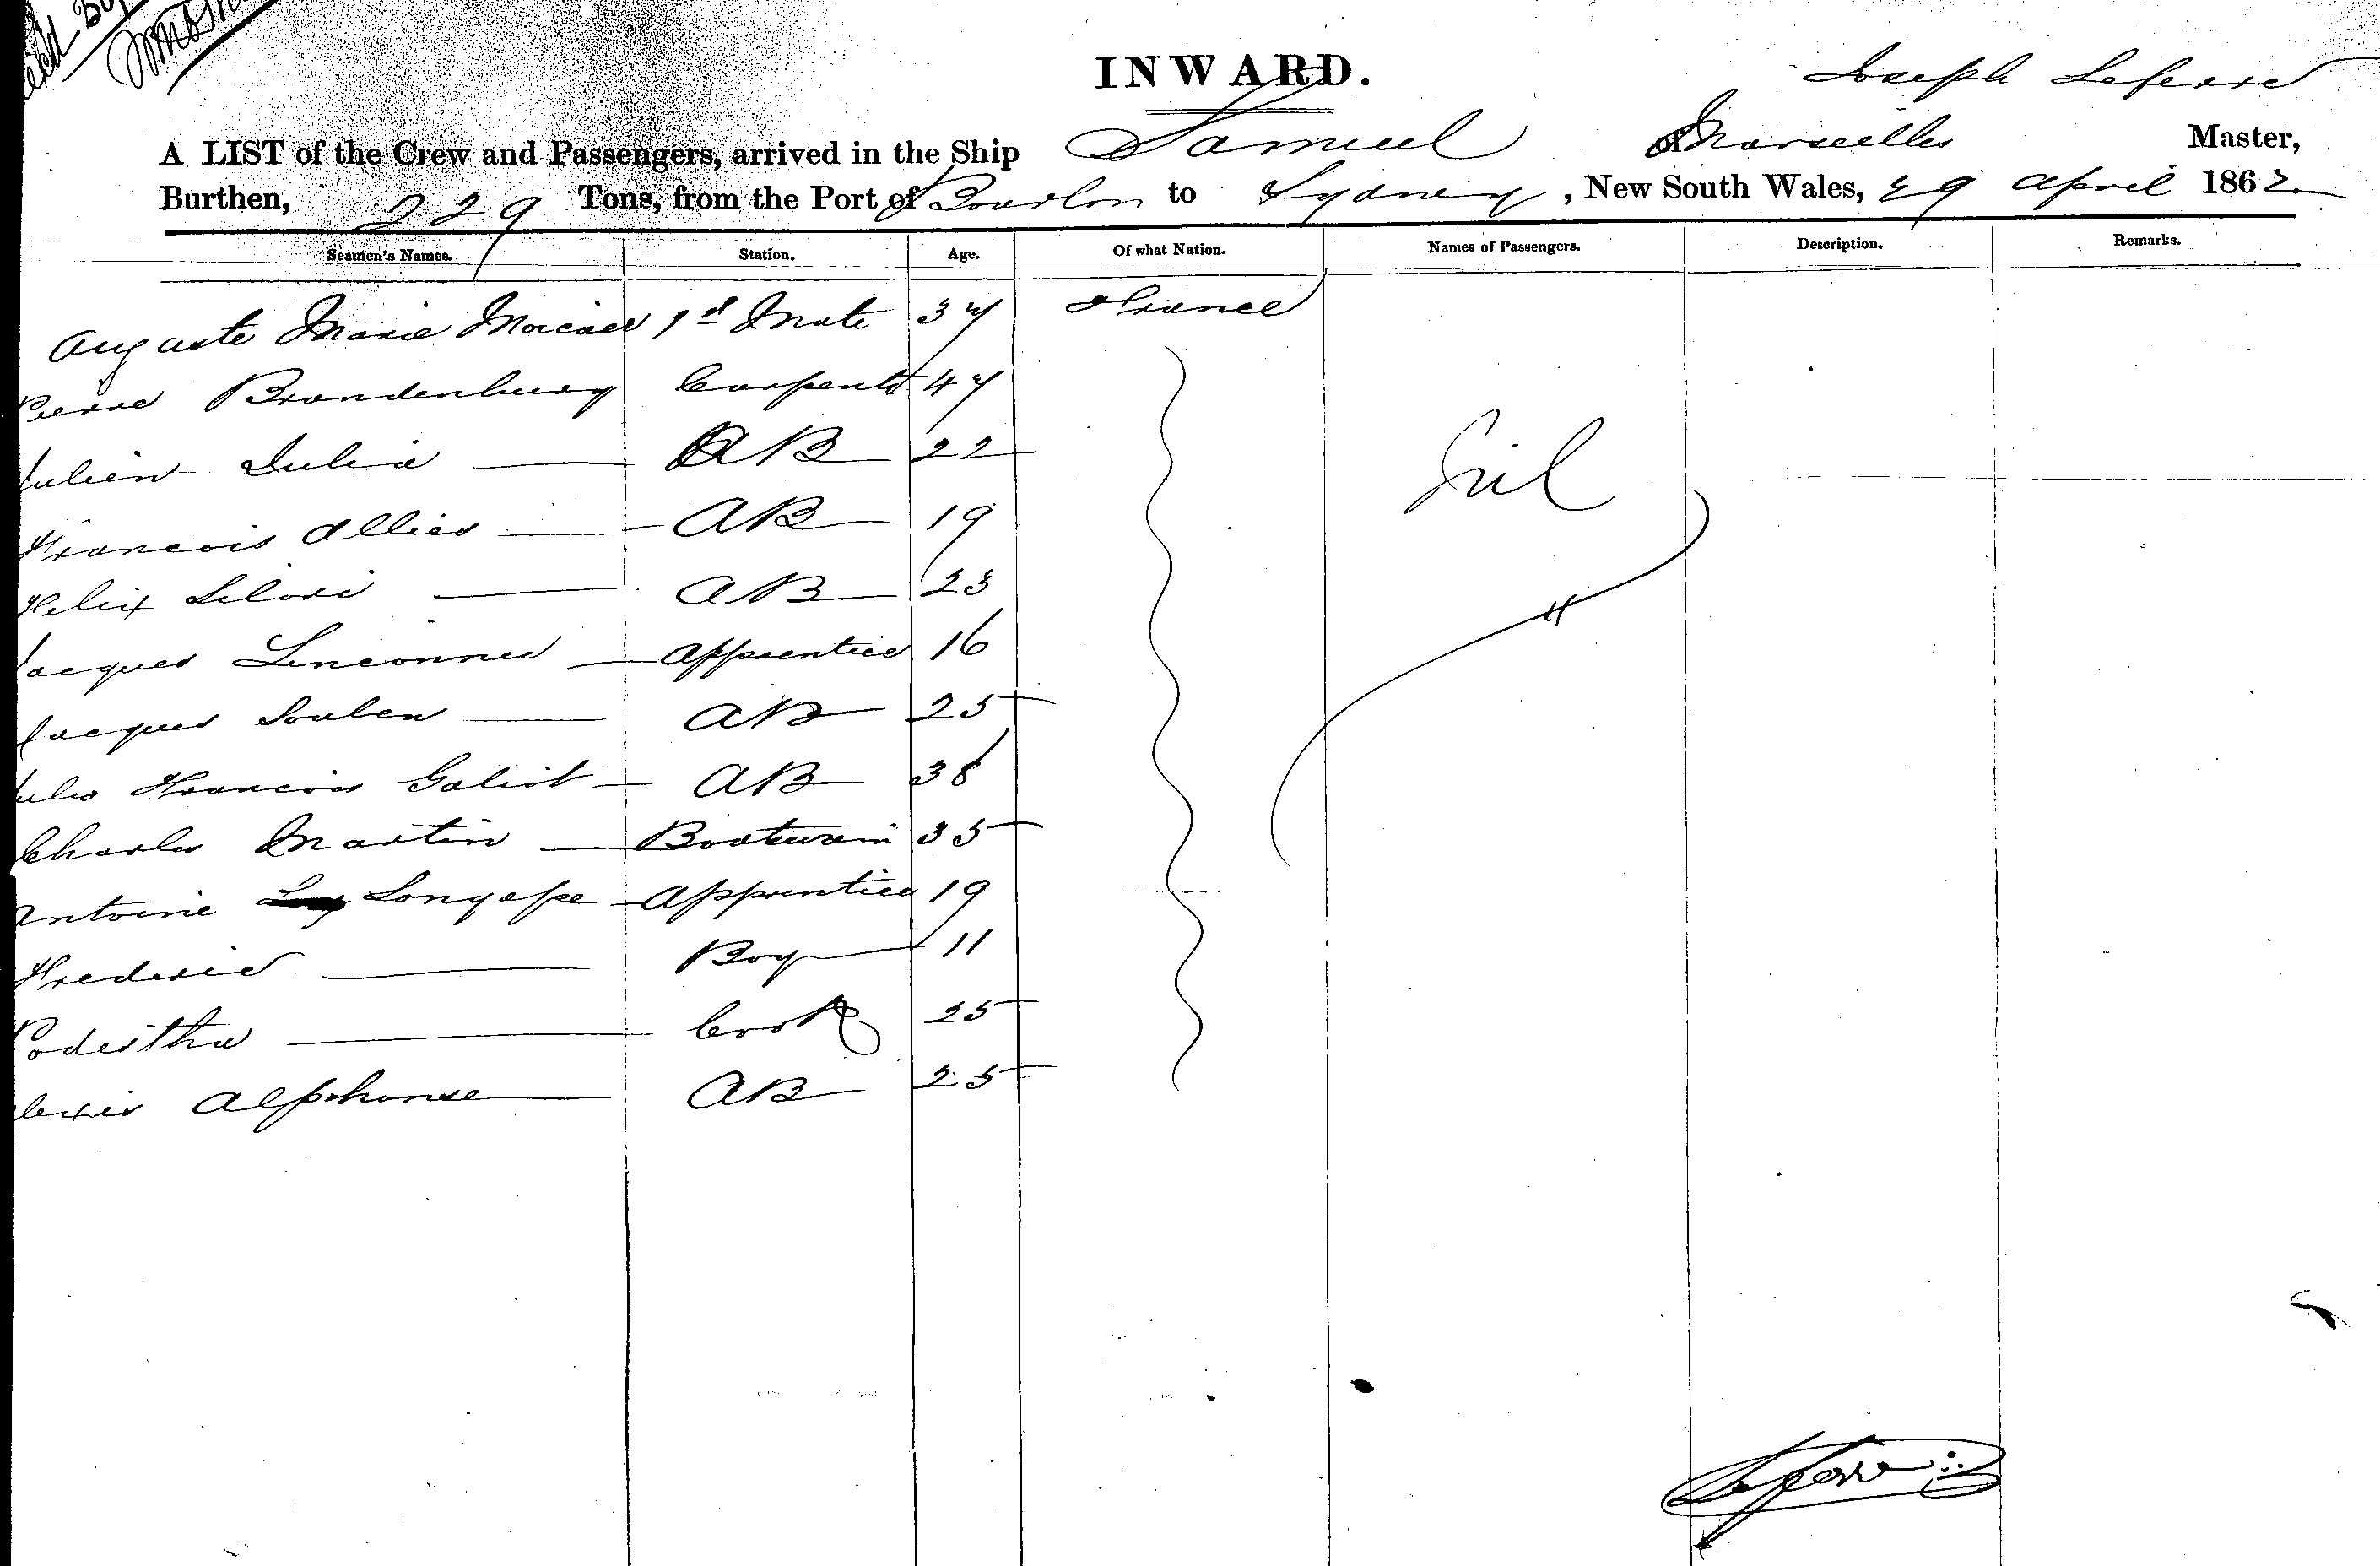 INWARD.
Joseph Leferre
A LIST of the Crew and Passengers, arrived in the Ship Samuel of Marseilles Master,
Burthen, 229 Tons, from the Port of Bourbon to Sydney, New South Wales, 29 April 1862
Seamen's Names. Station. Age. Of what Nation. Names of Passengers. Description. Remarks.
Auguste Marie 1st Mate 37 France
Pierre Brandenburg Carpentr 47
Julien Julia AB 22
Nil
Francois Allies AB 19
Felix AB 23
Jacques Linconnu Apprentice 16
Jacques Souben AB 25
Jules Francois Galiot AB 38
Charles Martin Boatswain 35
Antoine Longepe Apprentice 19
Frederic Boy 11
Podestha Cook 25
Alexis Alphonse AB 25
Leferre